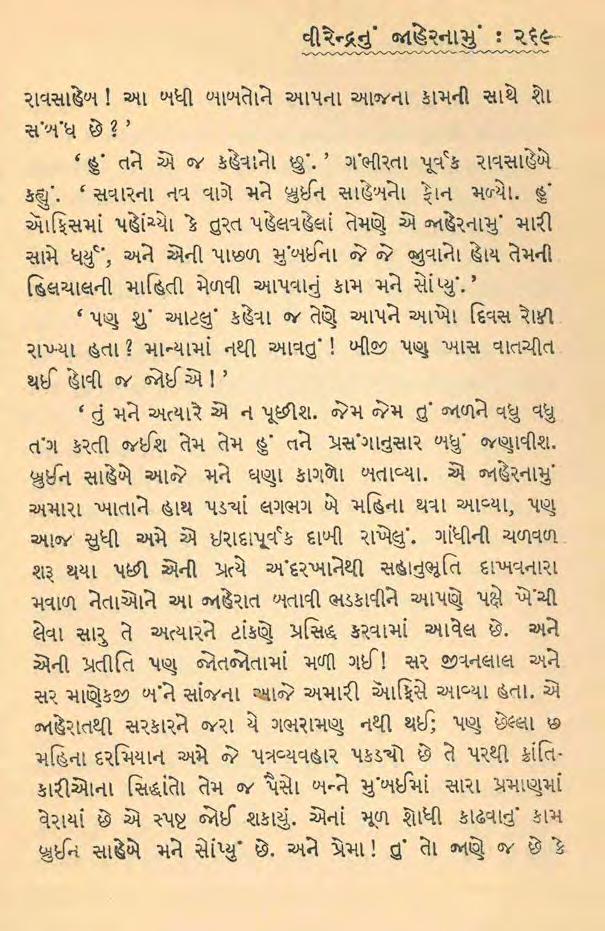 વીરેન્દ્રનું જાહેરનામું : ૨૬૯
રાવસાહેબ ! આ બધી બાબતોને આપના આજના કામની સાથે શો
સંબંધ છે ? ’
‘ હું તને એ જ કહેવાનો છું. ’ ગંભીરતા પૂર્વક રાવસાહેબે
કહ્યું. ‘ સવારના નવ વાગે મને બ્રુઈન સાહેબનો ફોન મળ્યો. હું
ઑફિસમાં પહોંચ્યો કે તુરત પહેલવહેલાં તેમણે એ જાહેરનામું મારી
સામે ધર્યું, અને એની પાછળ મુંબઈના જે જે જુવાનો હોય તેમની
હિલચાલની માહિતી મેળવી આપવાનું કામ મને સોંપ્યું.’
‘ પણ શું આટલું કહેવા જ તેણે આપને આખો દિવસ રોકી
રાખ્યા હતા ? માન્યામાં નથી આવતું ! બીજી પણ ખાસ વાતચીત
થઈ હોવી જ જોઈએ ! ’
‘ તું મને અત્યારે એ ન પૂછીશ. જેમ જેમ તું જાળને વધુ વધુ
તંગ કરતી જઈશ તેમ તેમ હું તને પ્રસંગાનુસાર બધું જણાવીશ.
બ્રુઈન સાહેબે આજે મને ઘણા કાગળો બતાવ્યા. એ જાહેરનામું
અમારા ખાતાને હાથ પડ્યાં લગભગ બે મહિના થવા આવ્યા, પણ
આજ સુધી અમે એ ઇરાદાપૂર્વક દાબી રાખેલું. ગાંધીની ચળવળ
શરૂ થયા પછી એની પ્રત્યે અંદરખાનેથી સહાનુભૂતિ દાખવનારા
મવાળ નેતાઓને આ જાહેરાત બતાવી ભડકાવીને આપણે પક્ષે ખેંચી
લેવા સારુ તે અત્યારને ટાંકણે પ્રસિદ્ધ કરવામાં આવેલ છે. અને
એની પ્રતીતિ પણ જોતજોતામાં મળી ગઈ ! સર જીવનલાલ અને
સર માણેકજી બંને સાંજના આજે અમારી ઑફિસે આવ્યા હતા. એ
જાહેરાતથી સરકારને જરા યે ગભરામણ નથી થઈ; પણ છેલ્લા છ
મહિના દરમિયાન અમે જે પત્રવ્યવહાર પકડ્યો છે તે પરથી ક્રાંતિ-
કારીઓના સિદ્ધાંતો તેમ જ પૈસો બન્ને મુંબઈમાં સારા પ્રમાણમાં
વેરાયાં છે એ સ્પષ્ટ જોઈ શકાયું. એનાં મૂળ શોધી કાઢવાનું કામ
બ્રુઈન સાહેબે મને સોંપ્યું છે. અને પ્રેમા ! તું તો જાણે જ છે કે